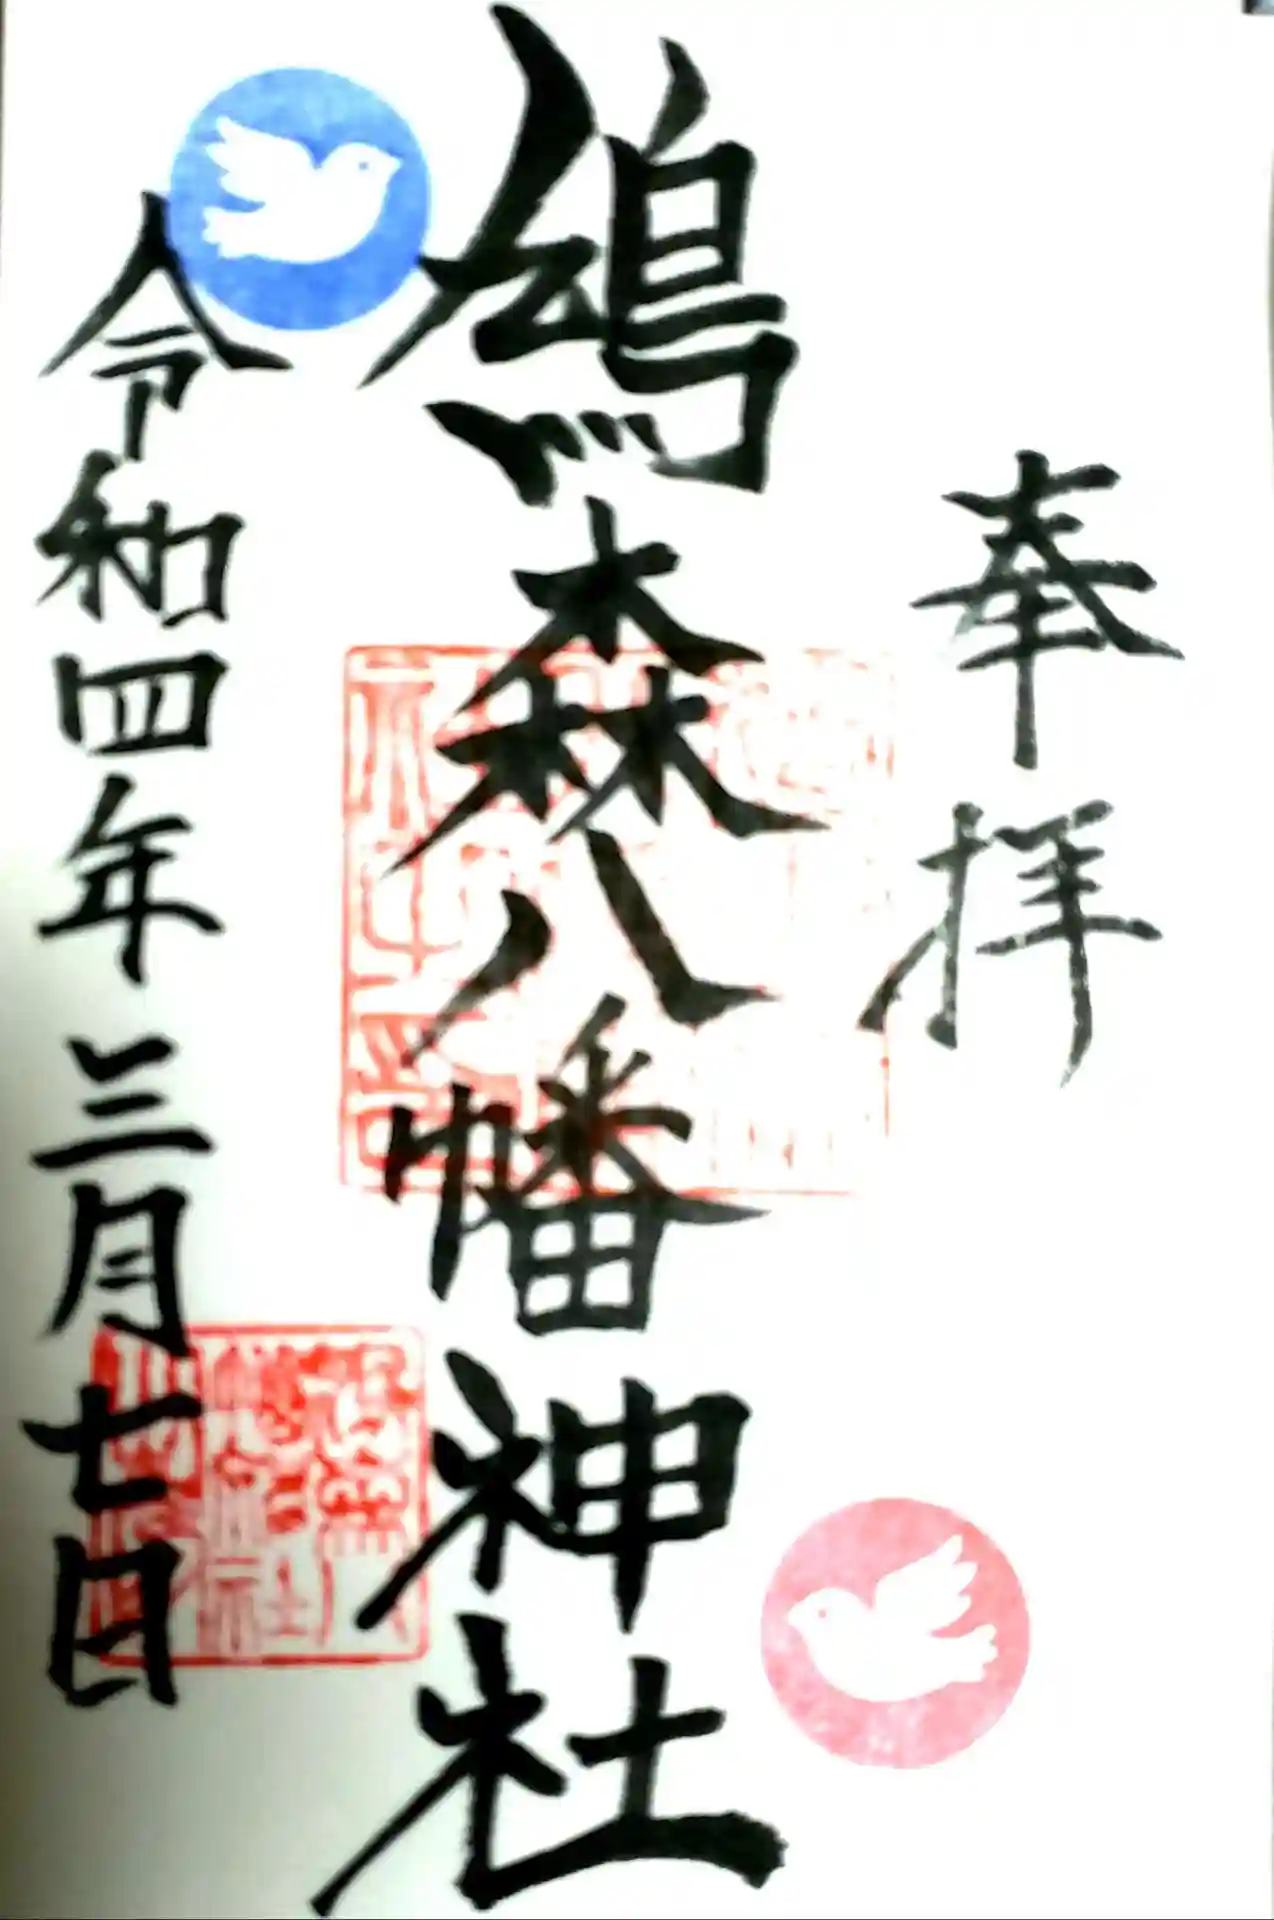 奉拝
鳩森八幡神社
令和四年三月七日